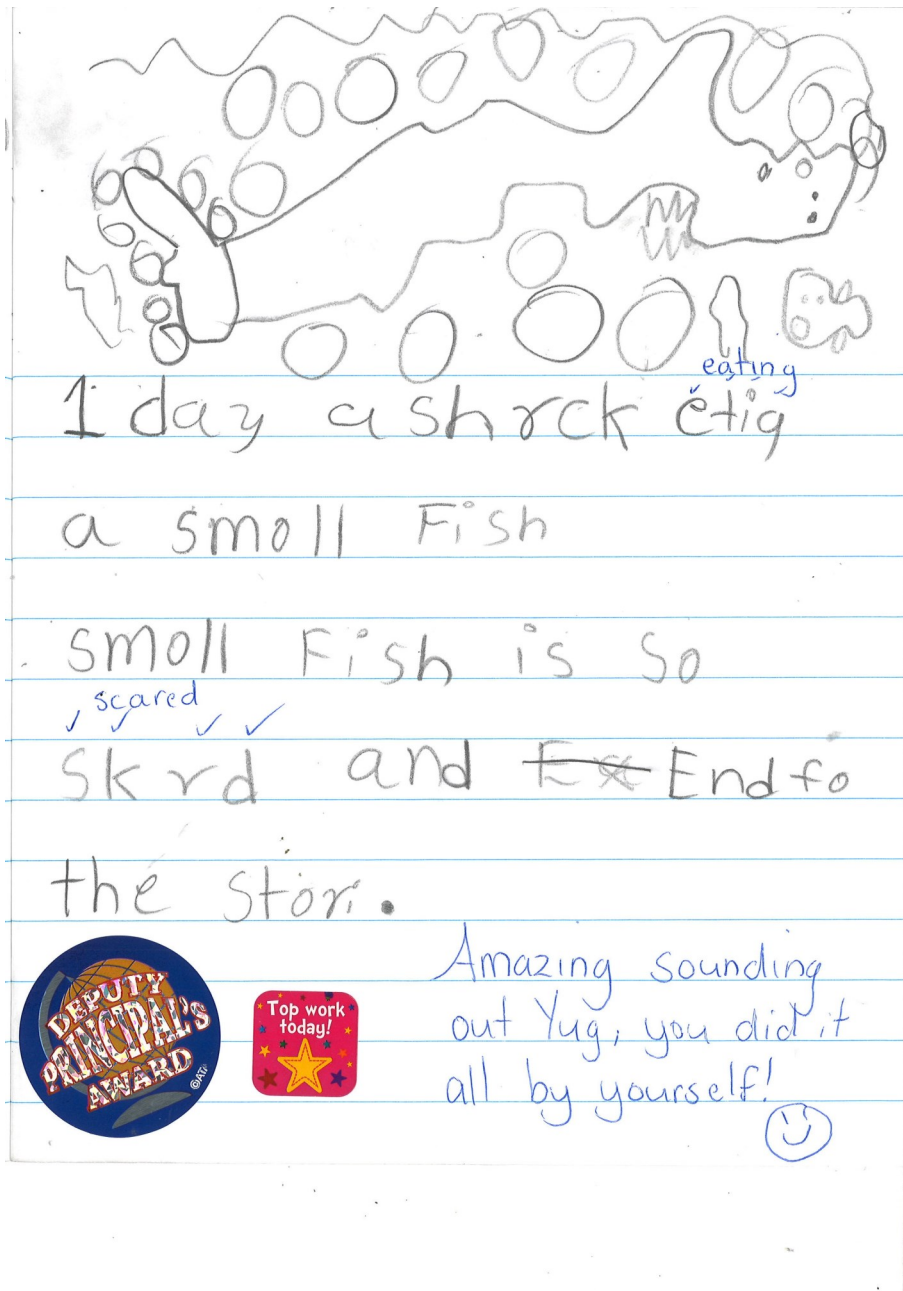 eating
1 day a shrck etig
a smoll Fish
smoll Fish is So
scared
Skrd and End fo
the stori.
DEPUTY
PRINCIPAL'S
AWARD
©ATA
Top work
today!
Amazing sounding
out Yug, you did it
all by yourself!